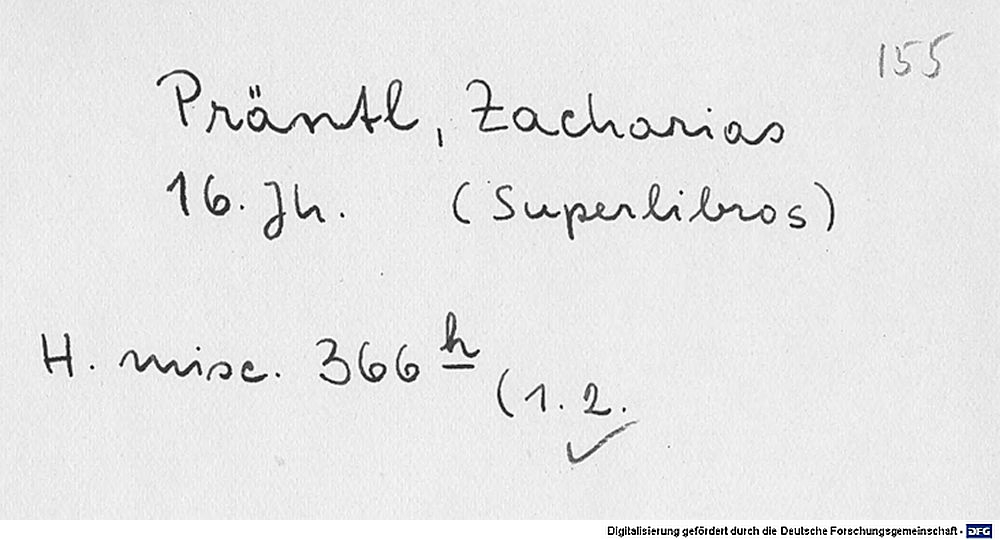 155
Präntl, Zacharias
16. Jh. (Superlibros)
H. misc. 366 h
(1. 2.
Digitalisierung gefördert durch die Deutsche Forschungsgemeinschaft - DFG